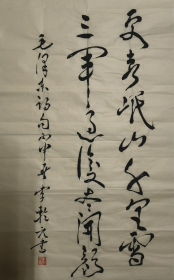 更喜岷山千里雪
三军过后尽开颜
毛泽东诗句